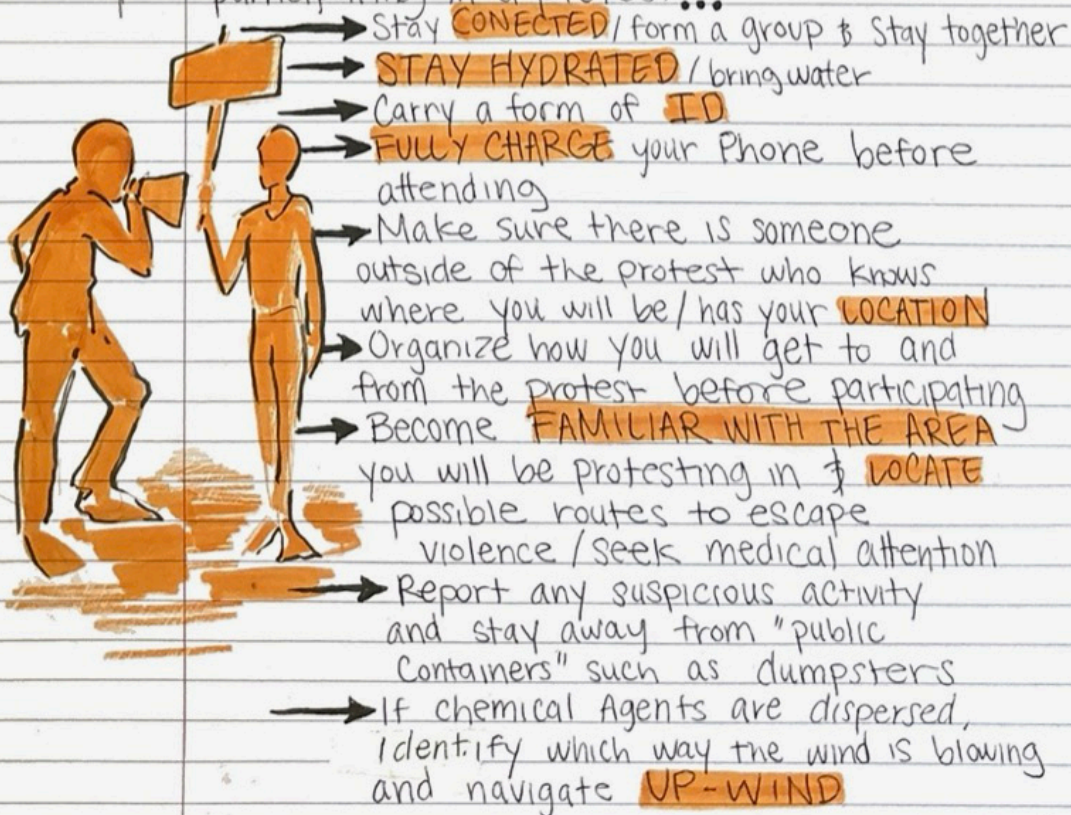 ...
→ Stay CONECTED/form a group & Stay together
→ STAY HYDRATED/bring water
→ Carry a form of ID
→ FULLY CHARGE your Phone before
attending
→ Make sure there is someone
outside of the protest who knows
where you will be/has your LOCATION
→ Organize how you will get to and
from the protest before participating
→ Become FAMILIAR WITH THE AREA
you will be protesting in & LOCATE
possible routes to escape
violence/seek medical attention
→ Report any suspicious activity
and stay away from "public
Containers" such as dumpsters
→ If chemical Agents are dispersed,
identify which way the wind is blowing
and navigate UP-WIND